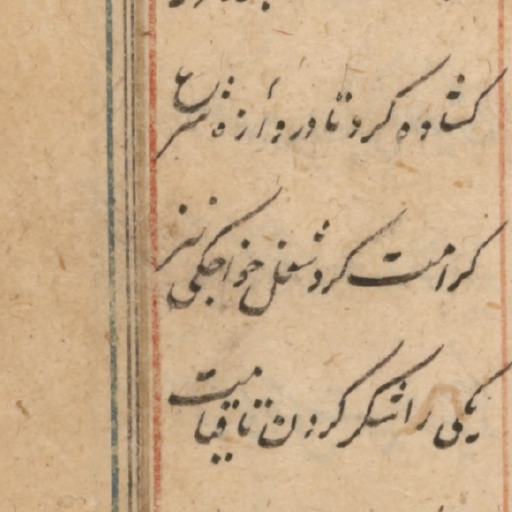 کشاده کرد تا دروازهٔ شرع
کرامت کرد شغل خواجکی نیز
یکی را شکر کردن تا قیامت